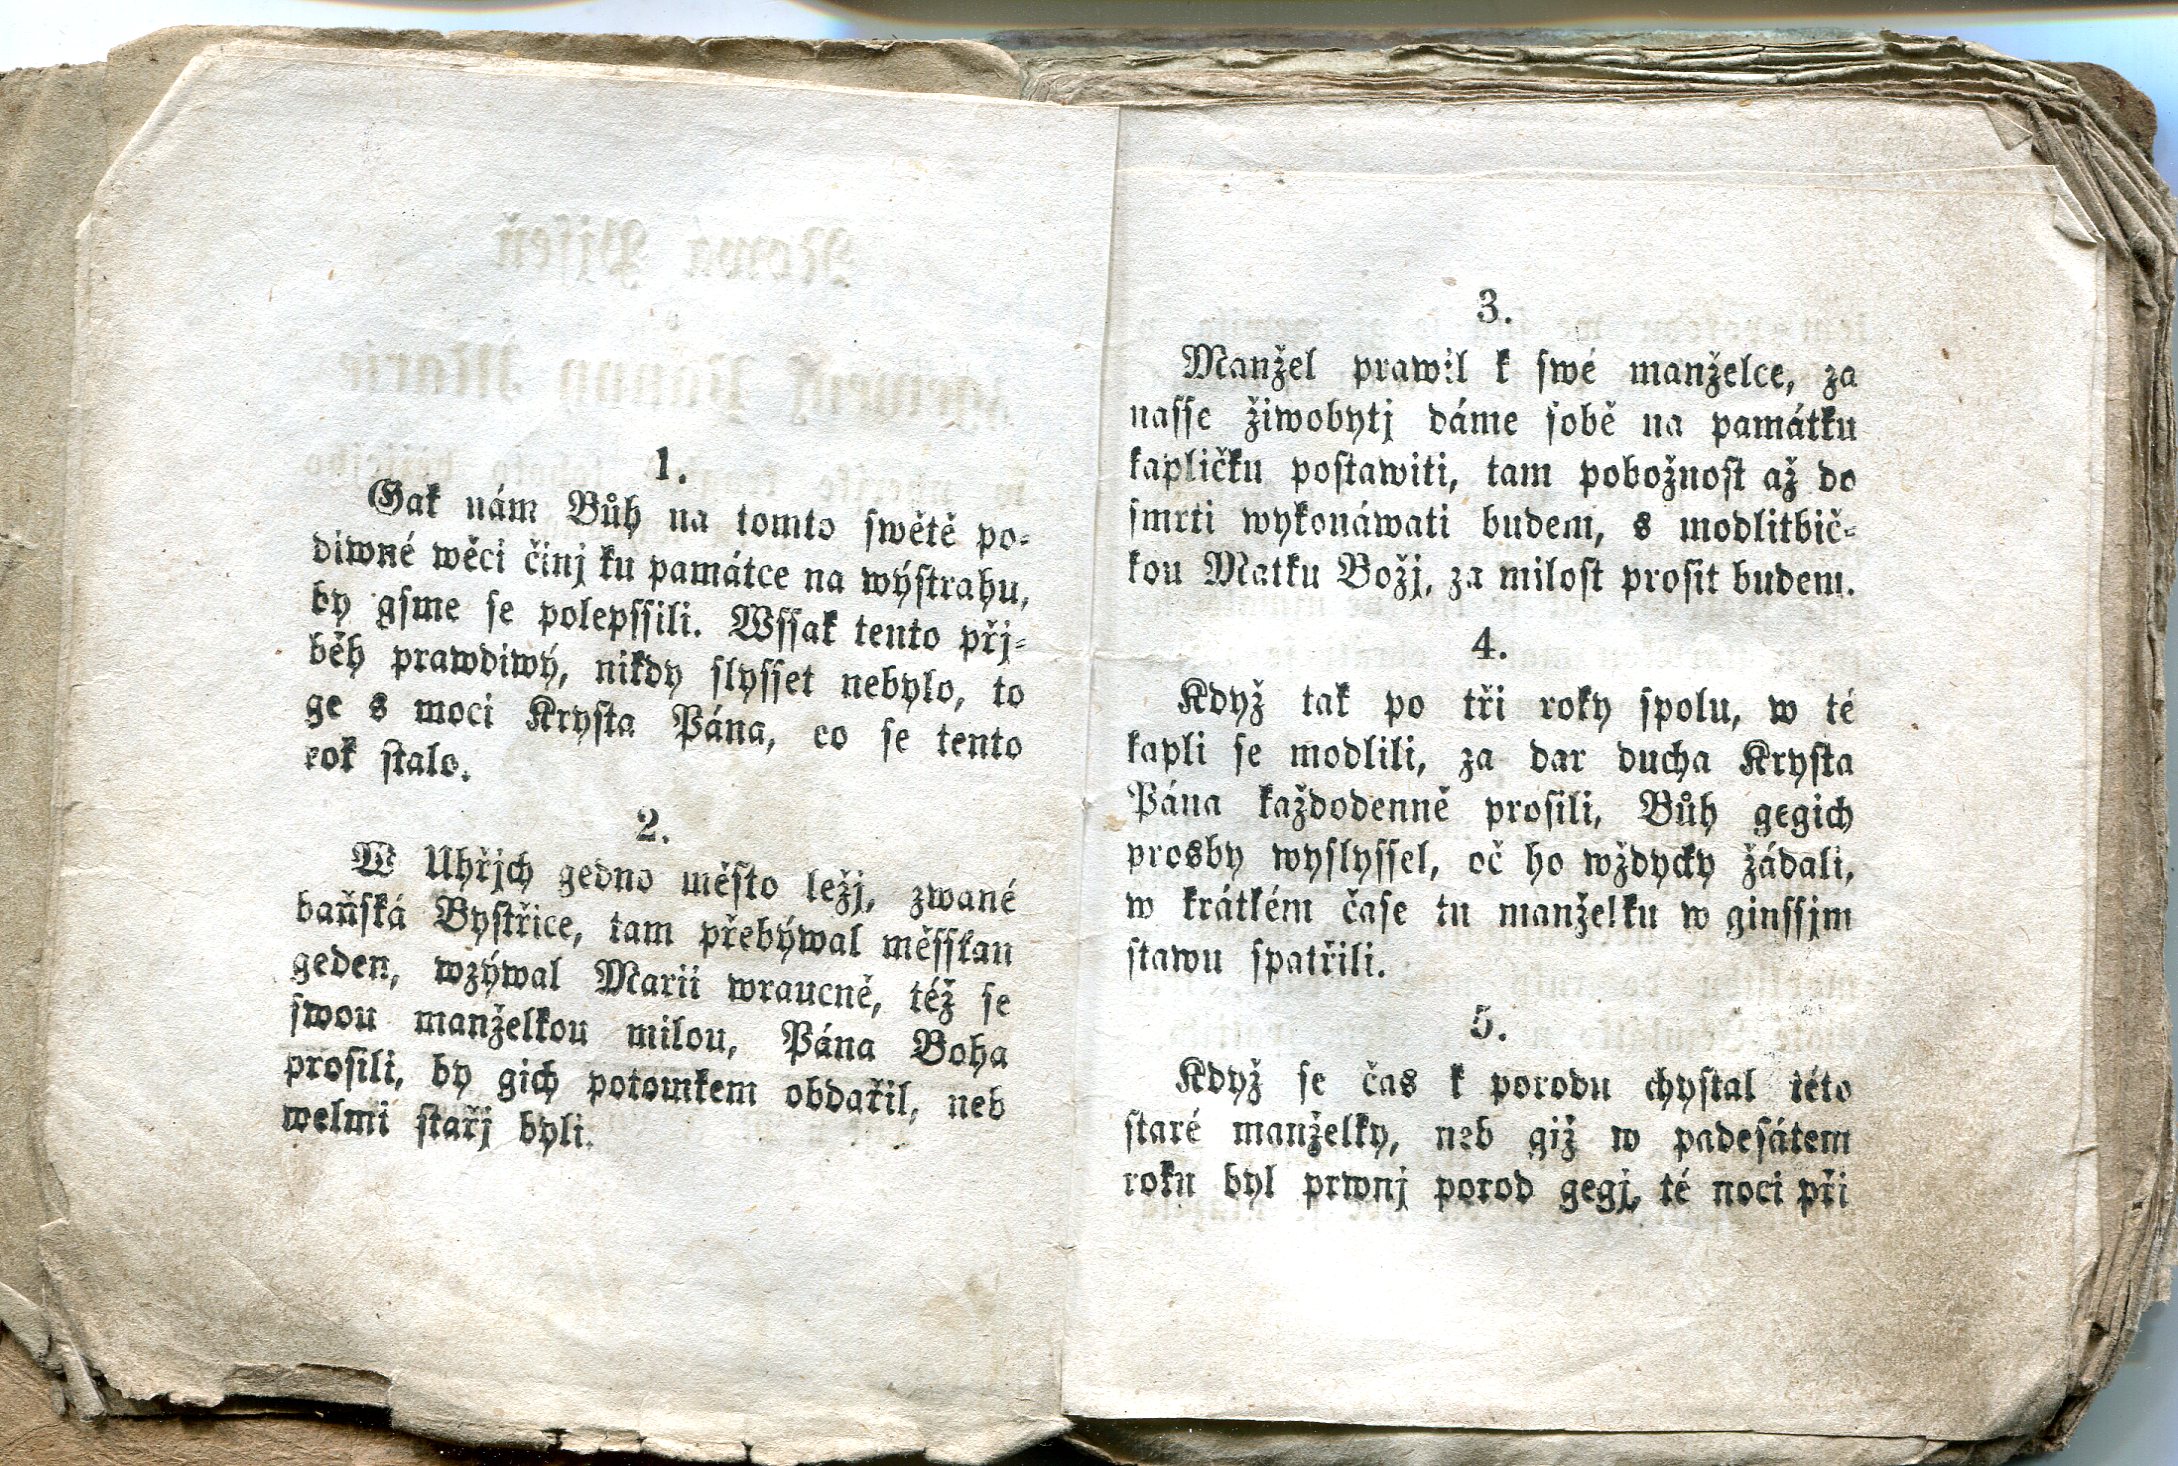 1.
Gak nám Bůh na tomto swětě po-
diwné wěci činj ku památce na wýstrahu,
by gsme se polepssili. Wssak tento přj-
běh prawdiwý, nikdy slysset nebylo, to
ge s moci Krysta Pána, co se tento
rok stalo.
2.
W Uhřjch gedno město ležj, zwané
baňská Bystřice, tam přebýwal měsstan
geden, wzýwal Marii wraucně, též se
swou manželkou milou, Pána Boha
prosili, by gich potomkem obdařil, neb
welmi stařj byli.
3.
Manžel prawil k swé manželce, za
nasse žiwobytj dáme sobě na památku
kapličku postawiti, tam pobožnost až do
smrti wykonáwati budem, s modlitbič-
kou Matku Božj, za milost prosit budem.
4.
Když tak po tři roky spolu, w té
kapli se modlili, za dar ducha Krysta
Pána každodenně prosili, Bůh gegich
prosby wyslyssel, oč ho wždycky žádali,
w krátkém čase tu manželku w ginssjm
stawu spatřili.
5.
Když se čas k porodu chystal této
staré manželky, neb giž w padesátem
roku byl prwnj porod gegj, té noci při